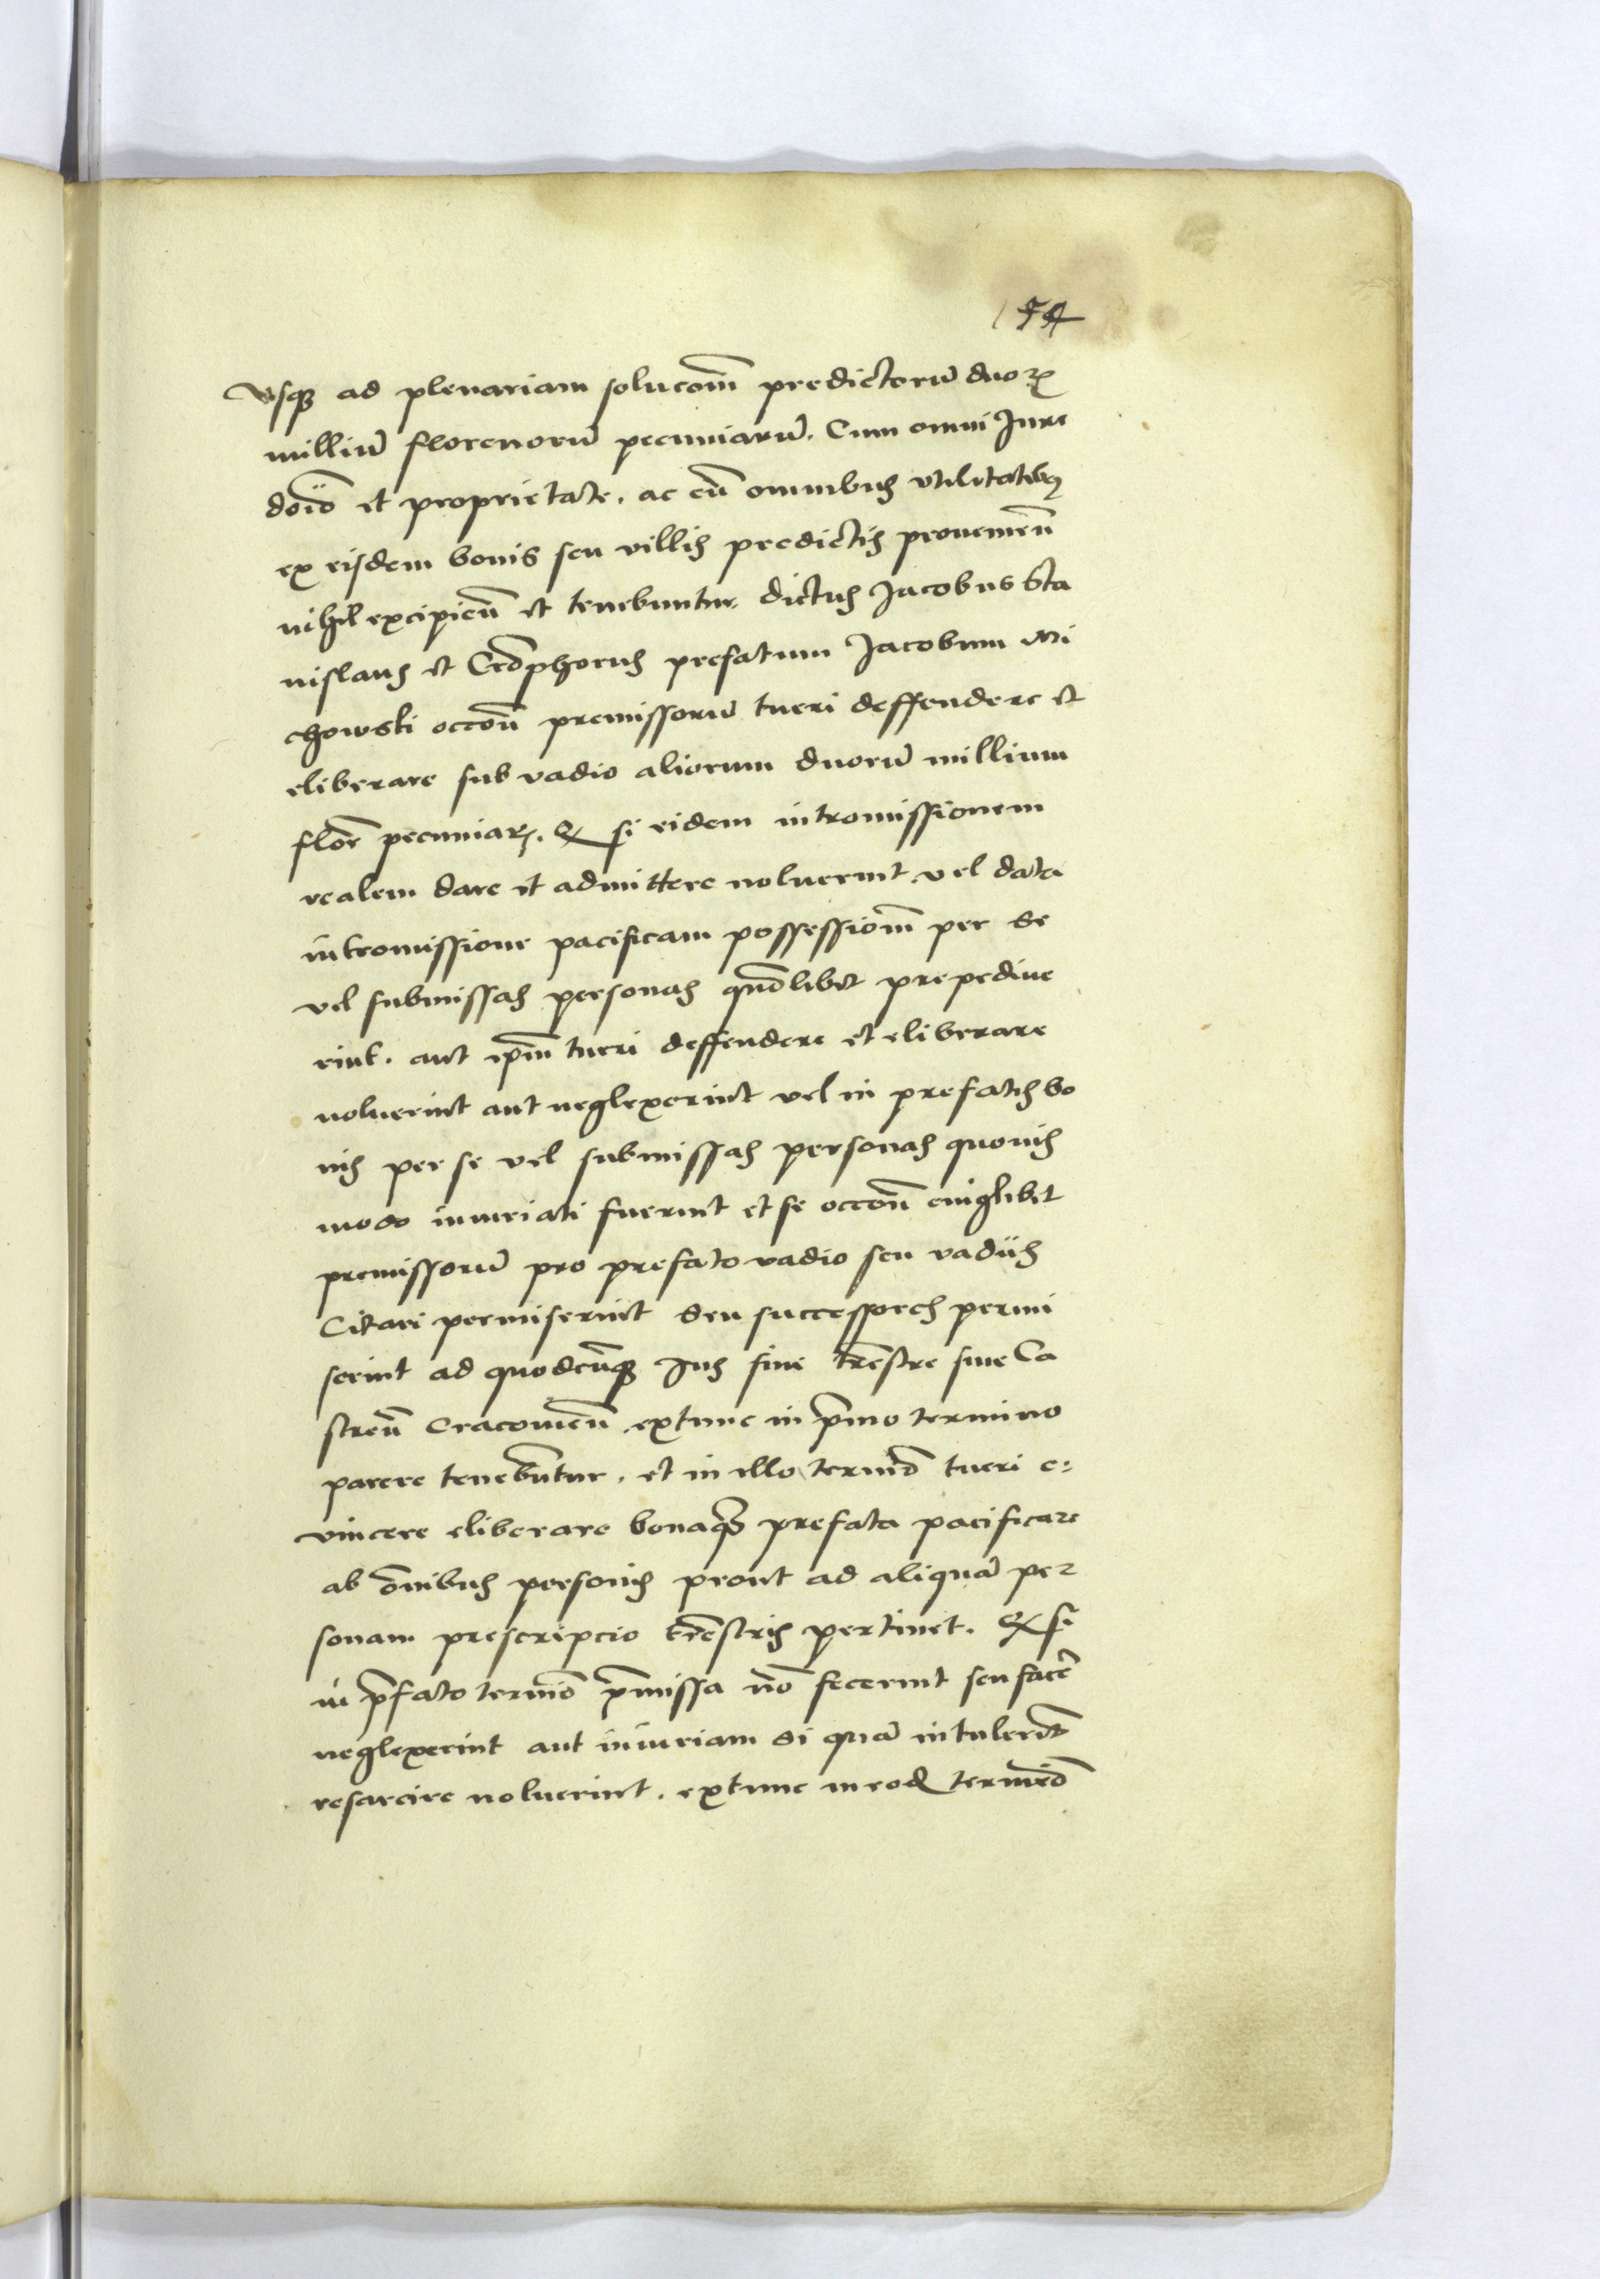 154
Vsq3 ad plenariam solucom̄ predictorū duoꝝ
milliū florenorū pecuniarū. Cum omni Jure
doīo et proprietate. ac cū omnibus vtilitatib9
ex eisdem bonis seu villis predictis prouenień
nihil excipień et tenebuntur dictus Jacobus Sta
nislaus et Cr̄ophorus prefatum Jacobum Mi
chowski occoń premissorū tueri deffendere et
eliberare sub vadio aliorum duorū millium
flor̄ pecuniaꝝ. Et si eidem intromissionem
realem dare et admittere noluerint vel data
intromissione pacificam possessiom̄ per se
vel submissas personas qm̄olibet prepediue
rint. aut ip̄m tueri deffendere et eliberare
noluerint aut neglexerint vel in prefatis bo
nis per se vel submissas personas quouis
modo iniuriati fuerint et se occoń cuiuslibet
premissorū pro prefato vadio seu vadiis
Citari permiserint seu successores permi
serint ad quodcūq3 Jus siue tr̄estre siue Ca
streń Cracouień extunc in p̄mo termino
parere teneb̄untur. et in illo termīo tueri e:
vincere eliberare bonaq3 prefata pacificare
ab om̄ibus personis prout ad aliquā per
sonam prescripcio tr̄estris pertinet. Et si
in p̄fato termīo p̄missa nō fecerint seu facē
neglexerint aut iniuriam si quā intulerīt
resarcire noluerint. extunc in eod termīo